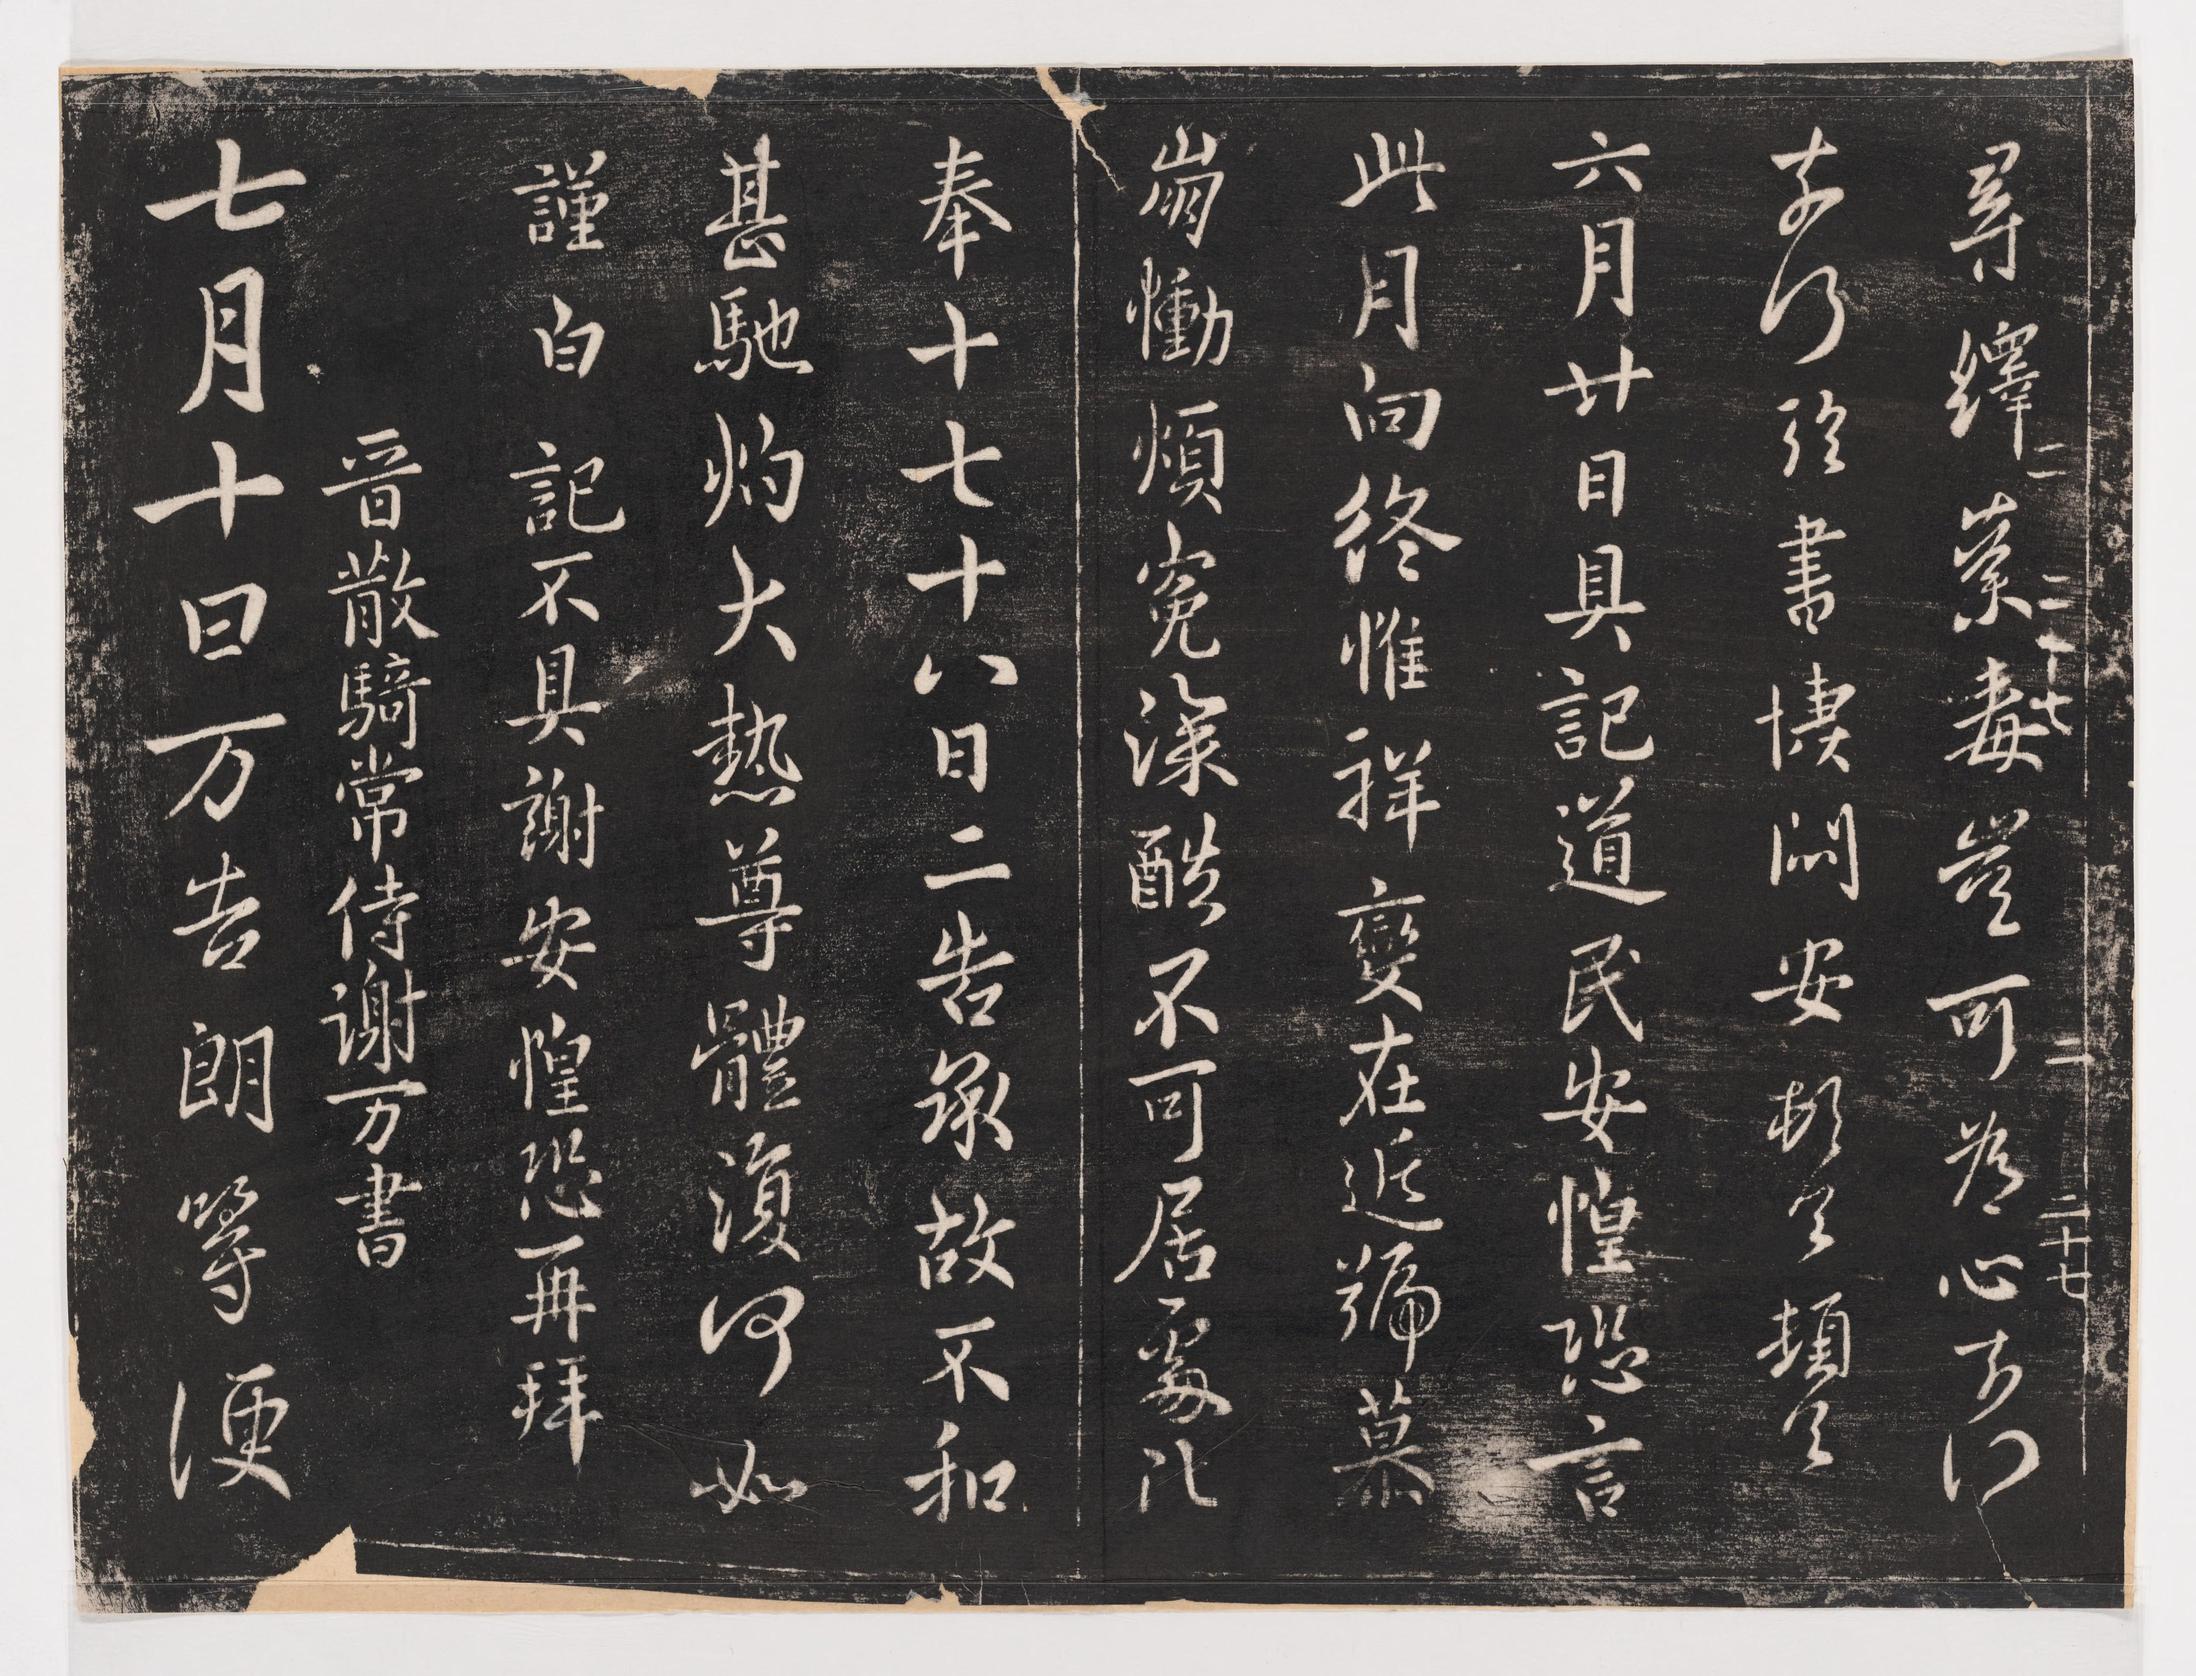 尋繹荼毒豈可爲心奈何
奈何臨書悽悶安頓首頓首
六月廿日具記道民安惶恐言
此月向終惟祥變在近號慕
崩慟煩冤深酷不可居處比
奉十七十八日二告承故不和
甚馳灼大熱尊體復何如
謹白記不具謝安惶恐再拜
晉散騎常侍謝万書
七月十日万告朗等便
二 二十七
二 二十七